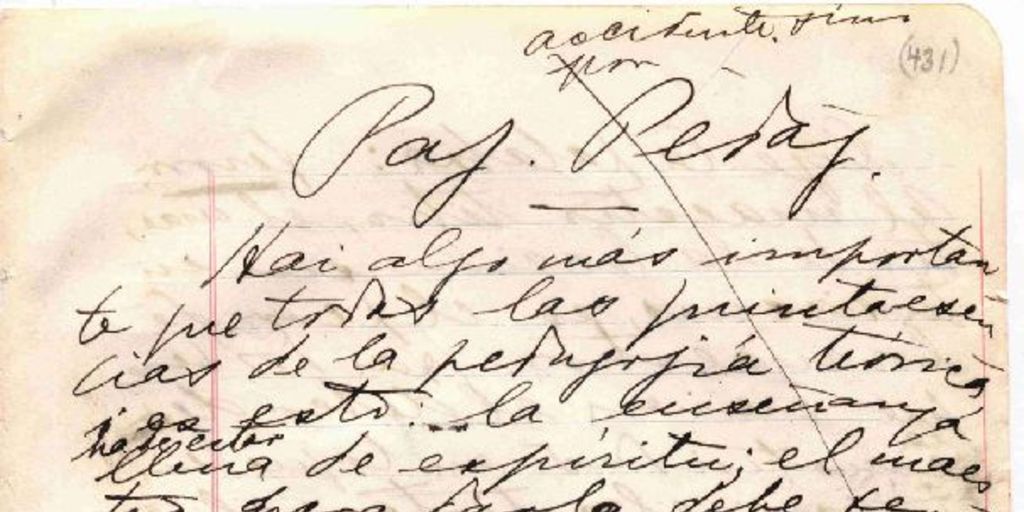 accidente. sino
por
(431)
Pag. Pedag.
Hai algo más importan
te que todas las quintaesen
cias de la pedagogía teórica,
i es esto: la enseñanza
ha de estar
llena de espíritu; el maes
tro debe